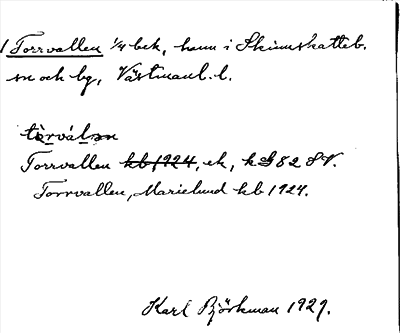 / Torrvallen 1/4 bek, hemm i Skinnskatteb.
sn och bg, Västmanl. l.
tòrválən
Torrvallen kb 1924, ek, 82 SV.
Torrvallen, Marielund kb 1924.
Karl Björkman 1929.